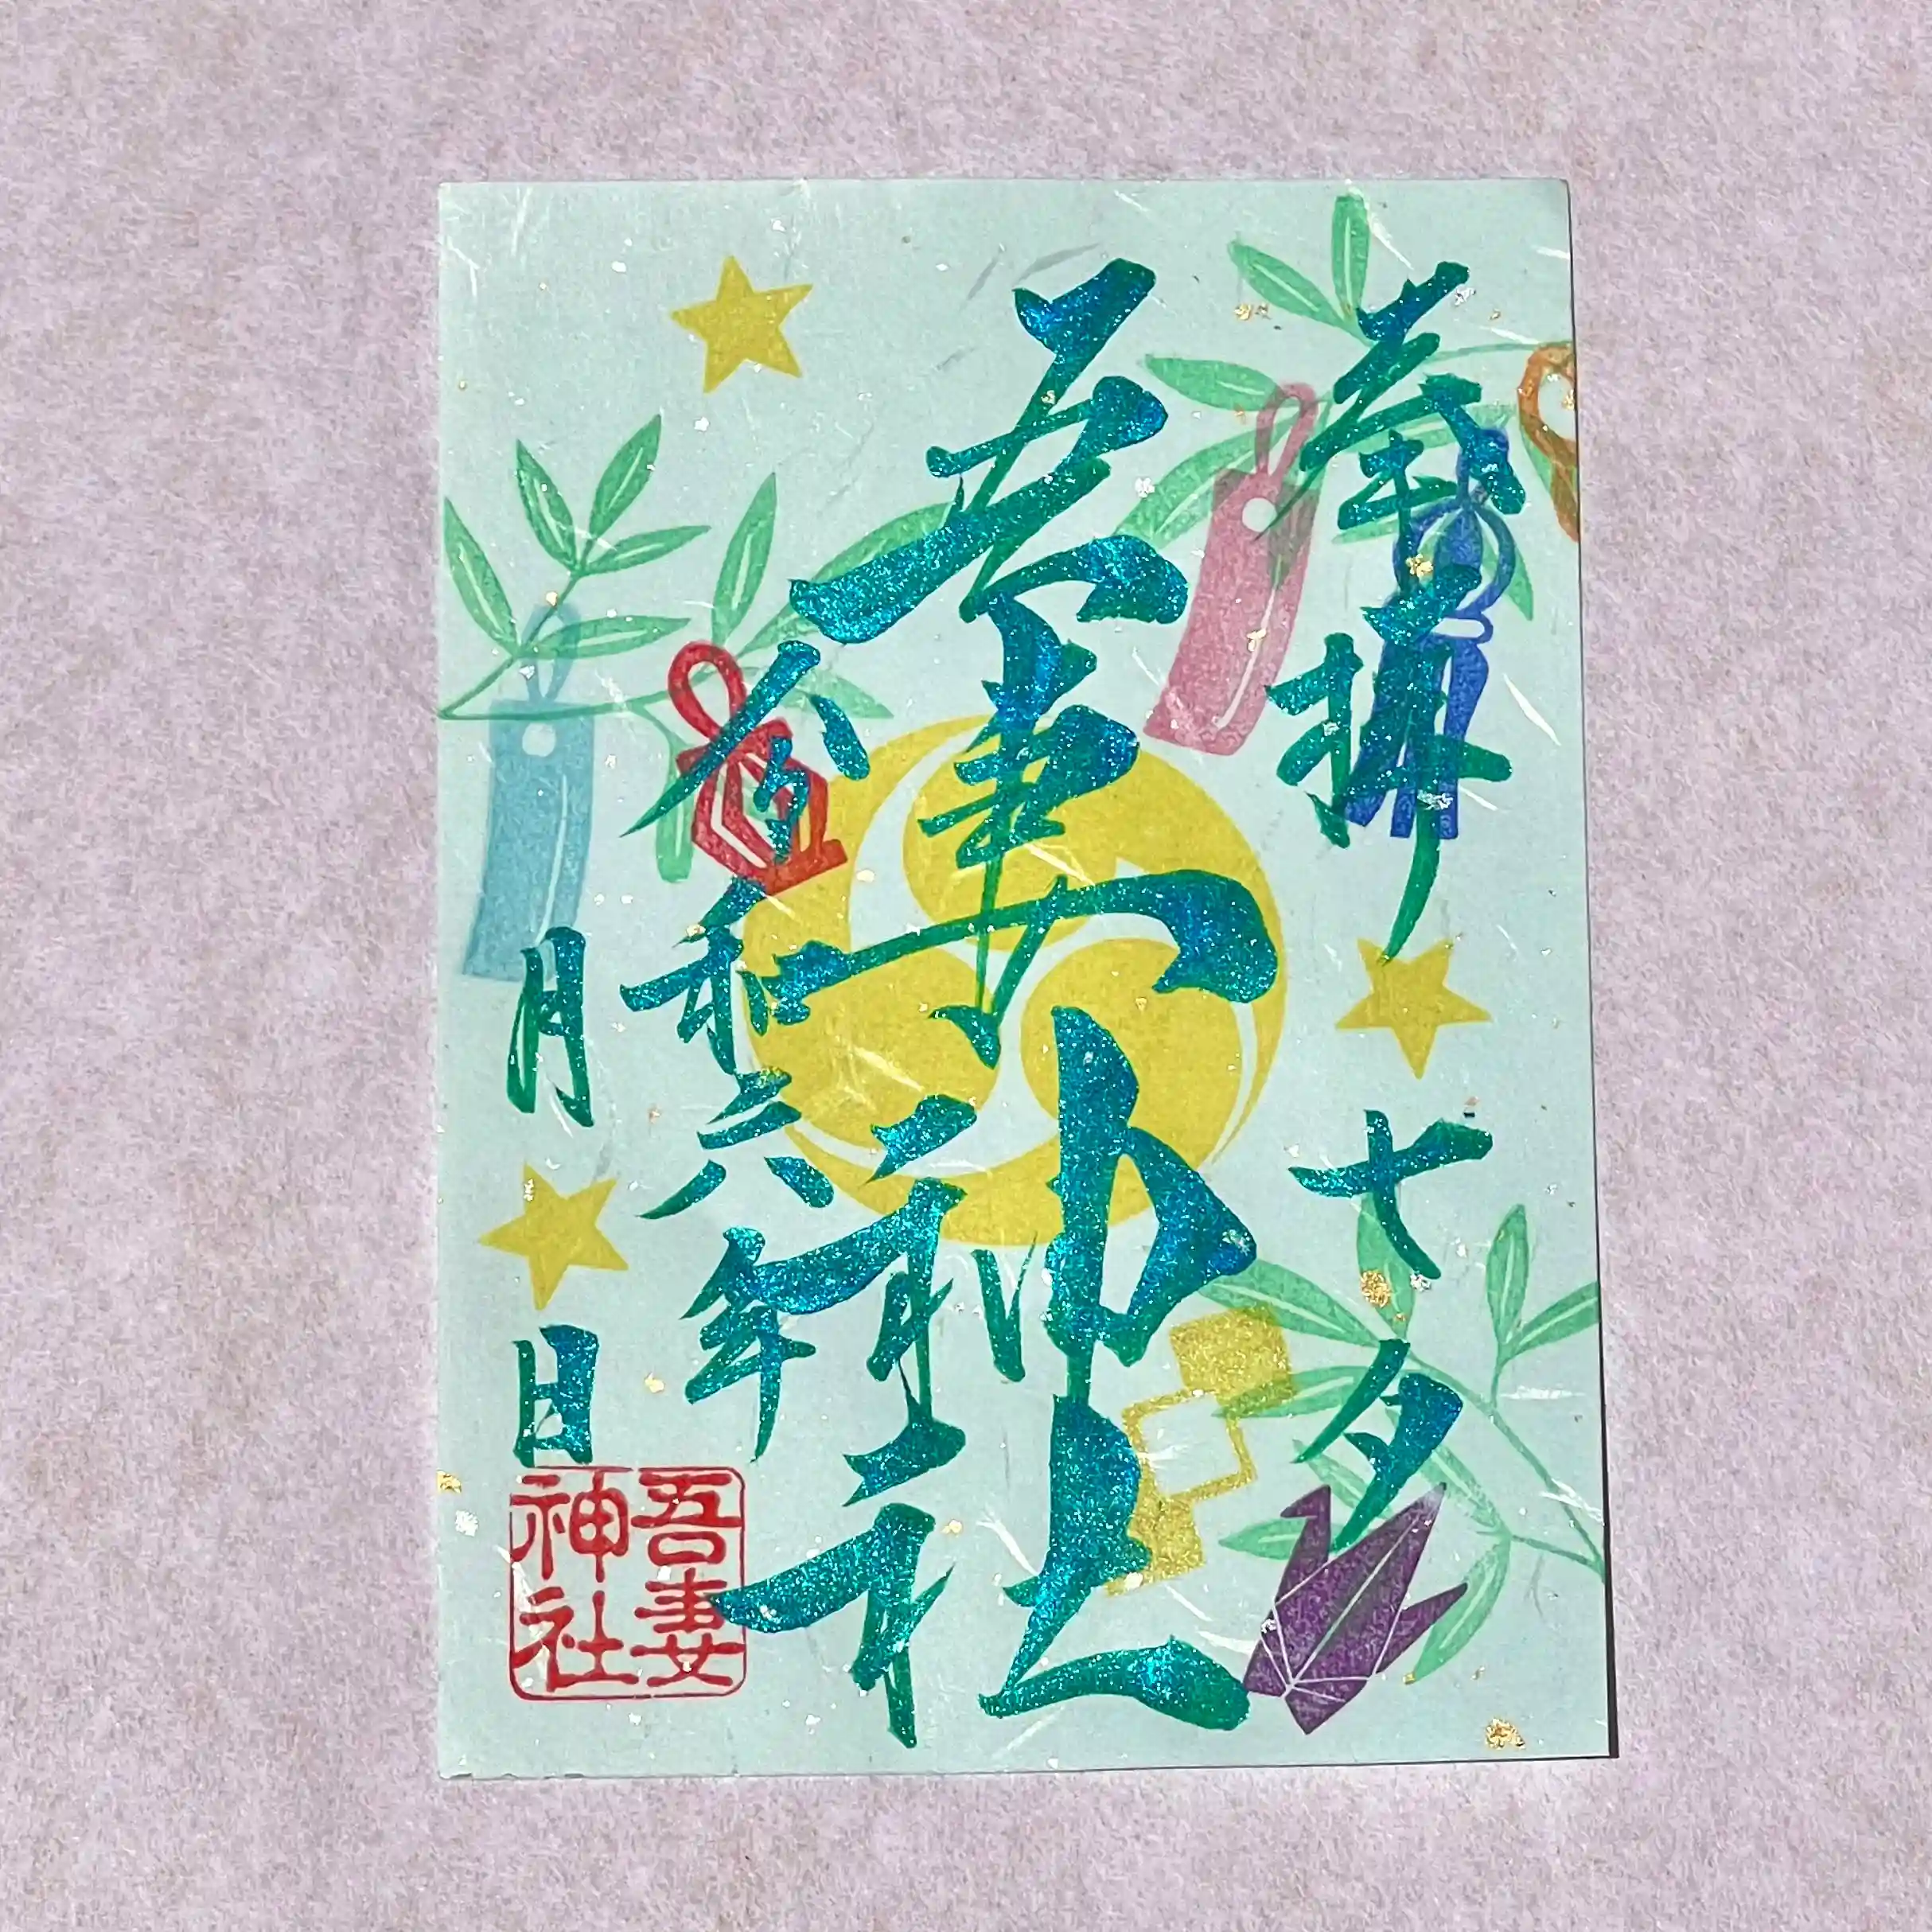 奉拝 七夕
吾妻神社
令和六年
月 日
吾妻
神社